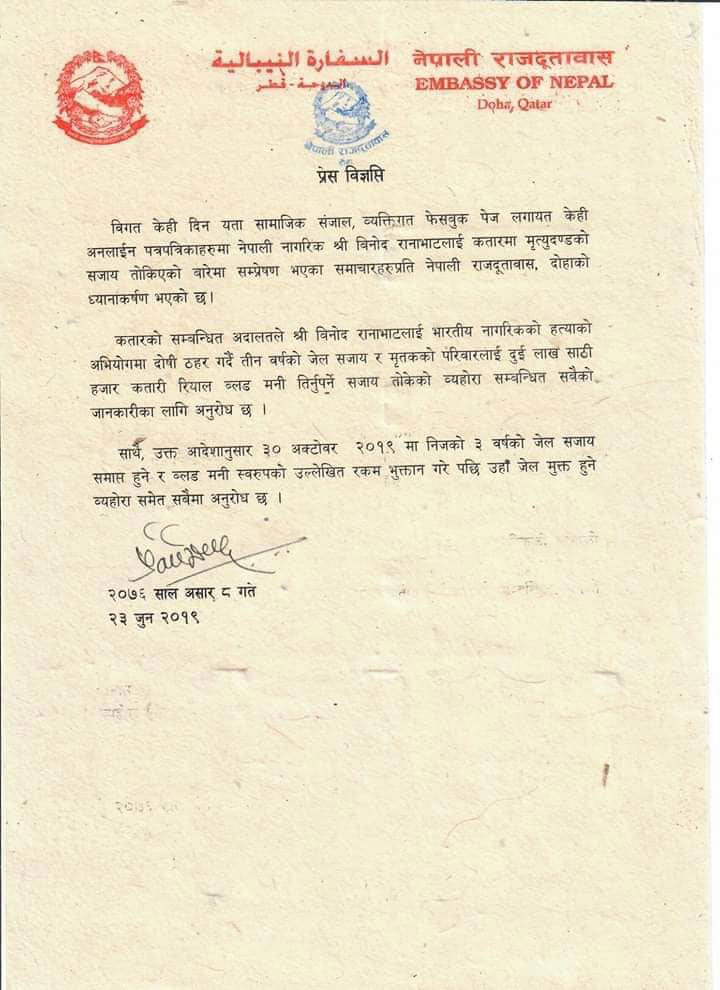 السفارة النيبالية
الدوحة - قطر
नेपाली राजदूतावास
EMBASSY OF NEPAL
Doha, Qatar
नेपाली राजदूतावास
प्रेस विज्ञप्ति
विगत केही दिन यता सामाजिक संजाल, व्यक्तिगत फेसबुक पेज लगायत केही
अनलाईन पत्रपत्रिकाहरुमा नेपाली नागरिक श्री विनोद रानाभाटलाई कतारमा मृत्युदण्डको
सजाय तोकिएको बारेमा सम्प्रेषण भएका समाचारहरुप्रति नेपाली राजदूतावास, दोहाको
ध्यानाकर्षण भएको छ।
कतारको सम्बन्धित अदालतले श्री विनोद रानाभाटलाई भारतीय नागरिकको हत्याको
अभियोगमा दोषी ठहर गर्दै तीन वर्षको जेल सजाय र मृतकको परिवारलाई दुई लाख साठी
हजार कतारी रियाल ब्लड मनी तिर्नुपर्ने सजाय तोकेको व्यहोरा सम्बन्धित सबैको
जानकारीका लागि अनुरोध छ ।
साथै, उक्त आदेशानुसार ३० अक्टोवर २०१९ मा निजको ३ वर्षको जेल सजाय
समाप्त हुने र ब्लड मनी स्वरुपको उल्लेखित रकम भुक्तान गरे पछि उहाँ जेल मुक्त हुने
व्यहोरा समेत सबैमा अनुरोध छ ।
२०७६ साल असार ८ गते
२३ जुन २०१९